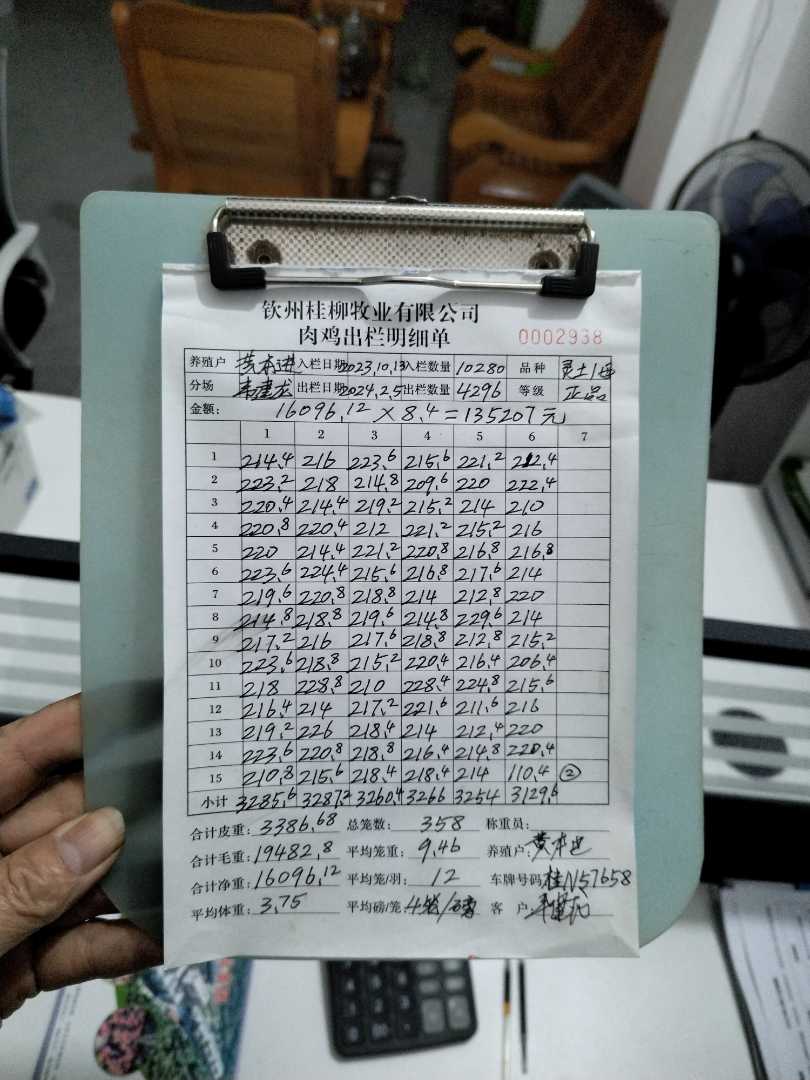 钦州桂柳牧业有限公司
肉鸡出栏明细单 0002938
养殖户 黄本进 入栏日期 2023.10.13 入栏数量 10280 品种 灵土1号
分场 出栏日期 2024.2.5 出栏数量 4296 等级 正品
金额: 16096.12×8.4=135207元
1 2 3 4 5 6 7
1 214.4 216 223.6 215.6 221.2 212.4
2 223.2 218 214.8 209.6 220 222.4
3 220.4 214.4 219.2 215.2 214 210
4 220.8 220.4 212 221.2 215.2 216
5 220 214.4 221.2 220.8 216.8 216.8
6 223.6 224.4 215.6 216.8 217.6 214
7 219.6 220.8 218.8 214 212.8 220
8 214.8 218.8 219.6 214.8 229.6 214
9 217.2 216 217.6 218.8 212.8 215.2
10 223.6 218.8 215.2 220.4 216.4 206.4
11 218 228.8 210 228.4 224.8 215.6
12 216.4 214 217.2 221.6 211.6 216
13 219.2 226 218.4 214 212.4 220
14 223.6 220.8 218.8 216.4 214.8 220.4
15 210.8 215.6 218.4 218.4 214 110.4 ②
小计 3285.6 3287.2 3260.4 3266 3254 3129.6
合计皮重: 3386.68 总笼数: 358 称重员:
合计毛重: 19482.8 平均笼重: 9.46 养殖户: 黄本进
合计净重: 16096.12 平均笼/羽: 12 车牌号码: 桂N57658
平均体重: 3.75 平均磅/笼: 4笼/磅 客 户: